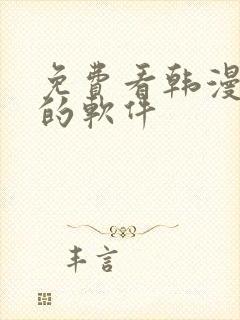 免费看韩漫
的軟件
丰言